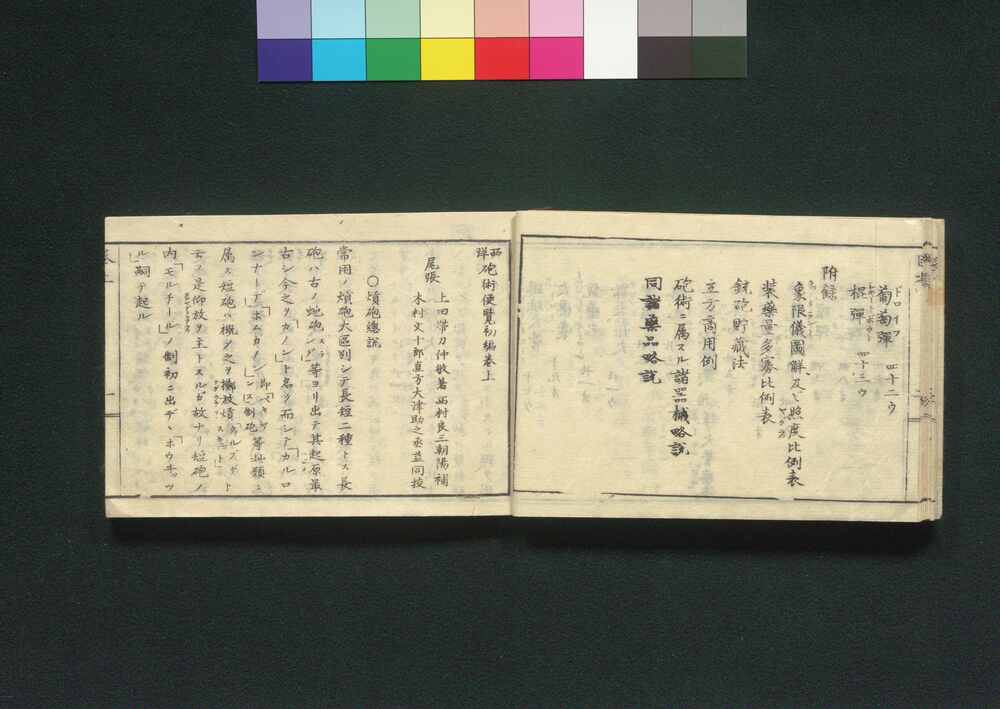 葡萄彈 四十二ウ
ドロイフ
榥彈 四十三ウ
附録
象限儀圖解及ビ照度比例表
装藥量多寡比例表
銃砲貯藏法
立方商用例
砲術ニ属スル諸器械略説
同諸藥品略説
西洋砲術便覧初編巻上
尾張
上田帶刀仲敏著西村良三朝陽補
木村文十郎直方大津助之丞並同挍
○熕砲總説
常用ノ熕砲大區別シテ長短二種トス長
砲ハ古ノ蛇砲等ヨリ出テ其起原最
古シ今之ヲ「カノン」ト名ク而シテ「カルロ
ンナーデ」「ボムカノン」等此類ニ
属ス短砲ハ概シテ之ヲ擲放熕ト
云フ是仰放ヲ主トスルガ故ナリ短砲ノ
内「モルチール」ノ創初ニ出デ「ホウヰッツ
ル」嗣テ起ル